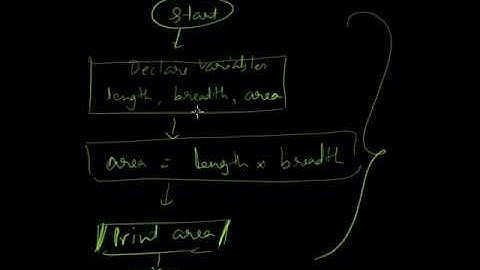 Start
Declare Variables
length, breadth, area
area = length × breadth
Print area